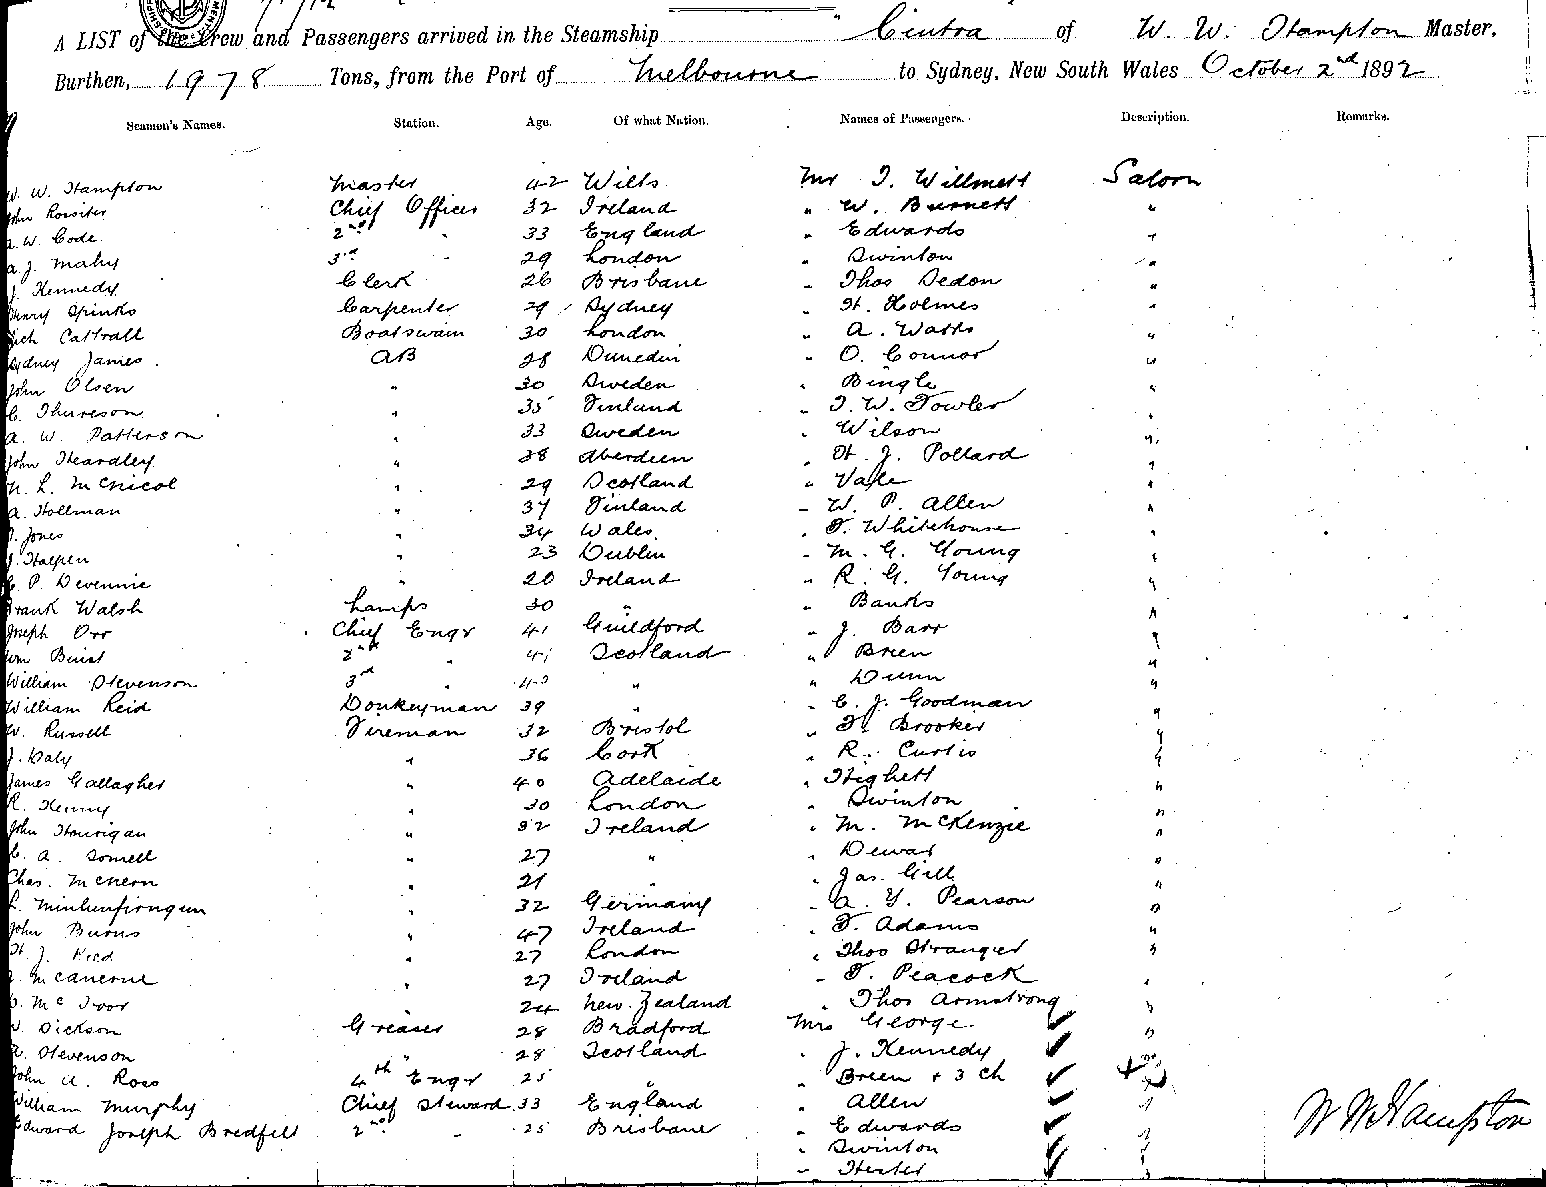 A LIST of the Crew and Passengers arrived in the Steamship "Cintra of W. W. Hampton Master,
Burthen, 1978 Tons, from the Port of Melbourne to Sydney, New South Wales October 2nd 1892
Seamen's Names. Station. Age. Of what Nation. Names of Passengers. Description. Remarks.
W. W. Hampton Master 42 Wilts Mr T. Willmett Saloon
John Rossiter Chief Officer 32 Ireland " W. Burnett "
A. W. Code 2nd " 33 England " Edwards "
A. J. Mahy 3rd " 29 London " Swinton "
J. Kennedy Clerk 26 Brisbane " Thos Dedon "
Henry Spinks Carpenter 29 Sydney " H. Holmes "
Rich Cattrall Boatswain 30 London " A. Watts "
Sydney James AB 28 Dunedin " O. Connor "
John Olsen " 30 Sweden " Bingle "
C. Thureson " 35 Finland " T. W. Fowler "
A. W. Patterson " 33 Sweden " Wilson "
John Heardley " 38 Aberdeen " H. J. Pollard "
N. L. McNicol " 29 Scotland " Vale "
A. Hollman " 37 Finland " W. P. Allen "
Jones " 34 Wales " F. Whitehouse "
Halpen " 23 Dublin " M. G. Young "
C. P. Devennie " 20 Ireland " R. G. Young "
Frank Walsh Lamps 30 " " Banks "
Joseph Orr Chief Engr 41 Guildford " J. Barr "
Wm Buist 2nd " 41 Scotland " Brien "
William Stevenson 3rd " 40 " " Dunn "
William Reid Donkeyman 39 " " C. J. Goodman "
W. Russell Fireman 32 Bristol " F. Brooker "
J. Daly " 36 Cork " R. Curtis "
James Gallagher " 40 Adelaide " Highett "
R. Kenny " 30 London " Swinton "
John Hourigan " 32 Ireland " M. McKenzie "
C. A. Somell " 27 " " Dewar "
Chas. McKern " 21 " " Jas. Gill "
L. " 32 Germany " A. Y. Pearson "
John Burns " 47 Ireland " F. Adams "
H. J. Reed " 27 London " Thos Stranger "
McAnerne " 27 Ireland " F. Peacock "
C. McIvor " 24 New Zealand " Thos Armstrong "
Dickson Greaser 28 Bradford Mrs George "
A. Stevenson " 28 Scotland " J. Kennedy "
John A. Ross 4th Engr 25 " " Breen + 3 Ch "
William Murphy Chief Steward 33 England " Allen "
Edward Joseph Bredfelt 2nd " 25 Brisbane " Edwards "
" Swinton "
" Hester "
W W Hampton